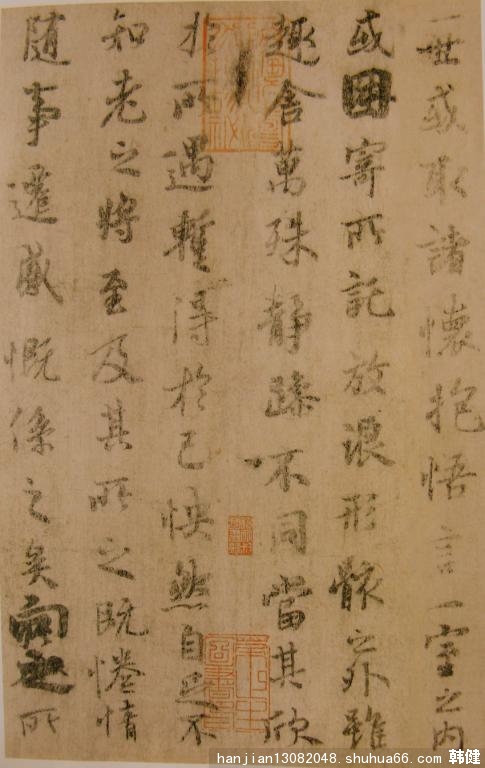 一世或取諸懷抱悟言一室之內
或因寄所託放浪形骸之外雖
趣舍萬殊靜躁不同當其欣
於所遇暫得於己怏然自足不
知老之將至及其所之既惓情
隨事遷感慨係之矣向之所
hanjian13082048.shuhua66.com 韩健